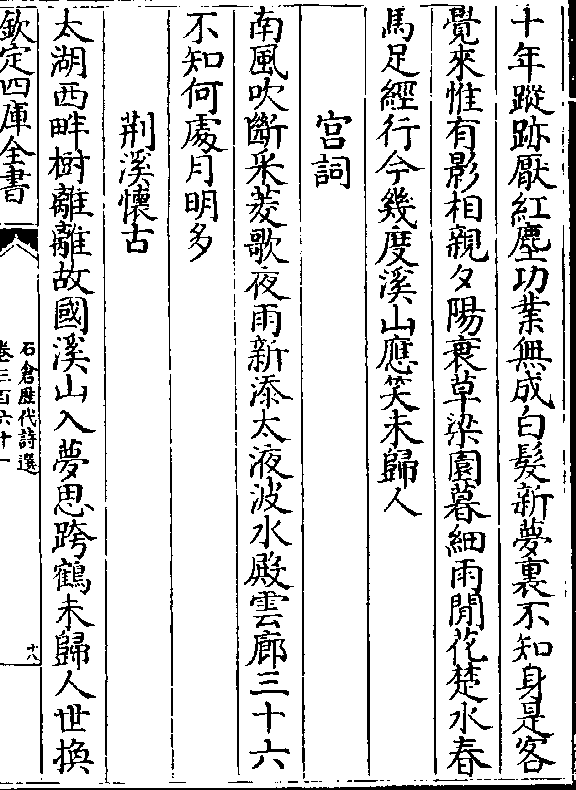 十年蹤跡厭紅塵功業無成白髮新夢裏不知身是客
覺來惟有影相親夕陽衰草梁園暮細雨閒花楚水春
馬足經行今幾度溪山應笑未歸人
宮詞
南風吹斷采菱歌夜雨新添太液波水殿雲廊三十六
不知何處月明多
荆溪懷古
太湖西畔樹離離故國溪山入夢思跨鶴未歸人世換
欽定四庫全書
石倉歴代詩選
卷三百六十一
十八